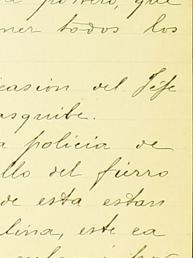 ner todos los
casion del Jefe
asquibe.
a policia de
llo del fierro
de esta estan
lina, este ca